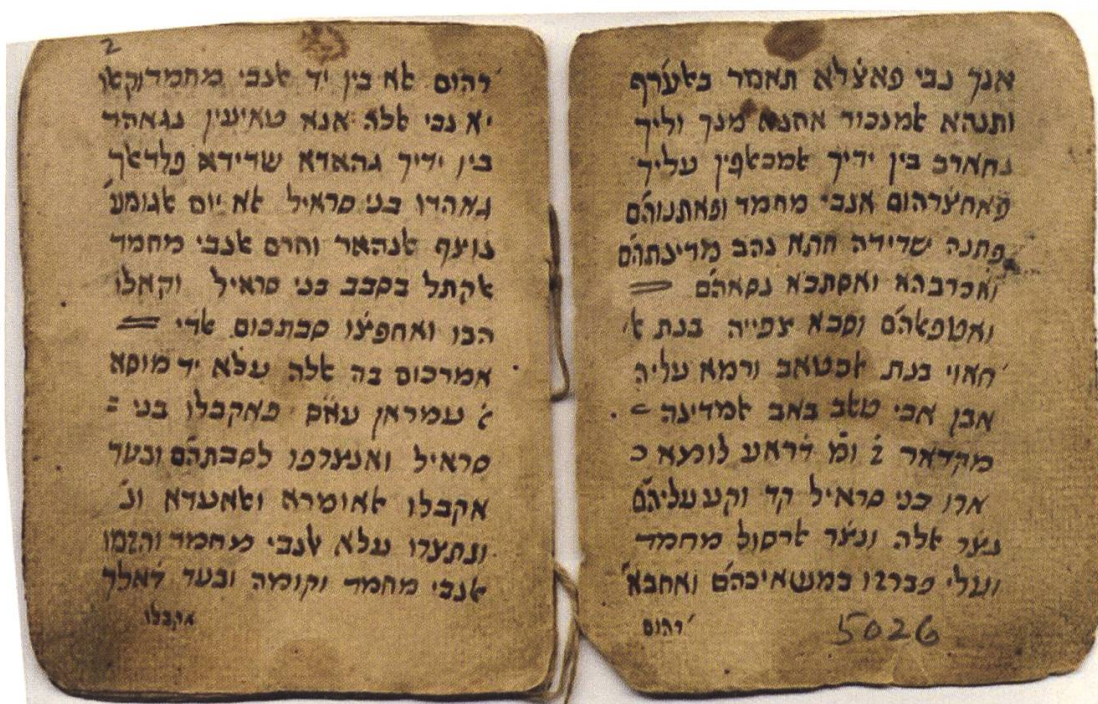 אנך נבי פאצ'לא תאמר בﭏערף
ותנהא ﭏמנכור אחנא מנך וליך
נחארב בין ידיך ﭏמכאפין עליך
פאחצ'רהום ﭏנבי מחמד ופאתנוהם
פתנה שדידה חתא נהב מדינתהם
ואכרבהא ואסתבא נסאהם
ואטפאהם וסבא צפייה בנת א'
חאוי בנת ﭏכטאב ורמא עליה
אבן אבי טﭏב באב ﭏמדינה
מקדאר 2 דראע
ארו בני סראיל קד וקע עליהם
נצר ﭏלה ונצר ﭏרסול מחמד
ועלי פברזו במשאיכהם ואחבא'
'רהום
5026
2
'רהום ﭏא בין יד ﭏנבי מחמד וקאו
יא נבי ﭏלה אנא טאיעין נגאהד
בין ידיך גהאדא שדידא פלדאך
גאהדו בני סראיל ﭏא יום ﭏגומע'
נוצף ﭏנהאר וחרם ﭏנבי מחמד
ﭏקתל בסבב בני סראיל וקאלו
הבו ואחפיצ'ו סבתכום ﭏדי
אמרכום בה ﭏלה עלא יד מוסא
עמראן פאקבלו בני
סראיל ואנצרפו לסבתהם ובעד
אקבלו ﭏאומרא וﭏאעדא ונ'
ונתצרו עלא ﭏנבי מחמד והזמו
ﭏנבי מחמד וקומה ובעד ד'אלך
אקבלו